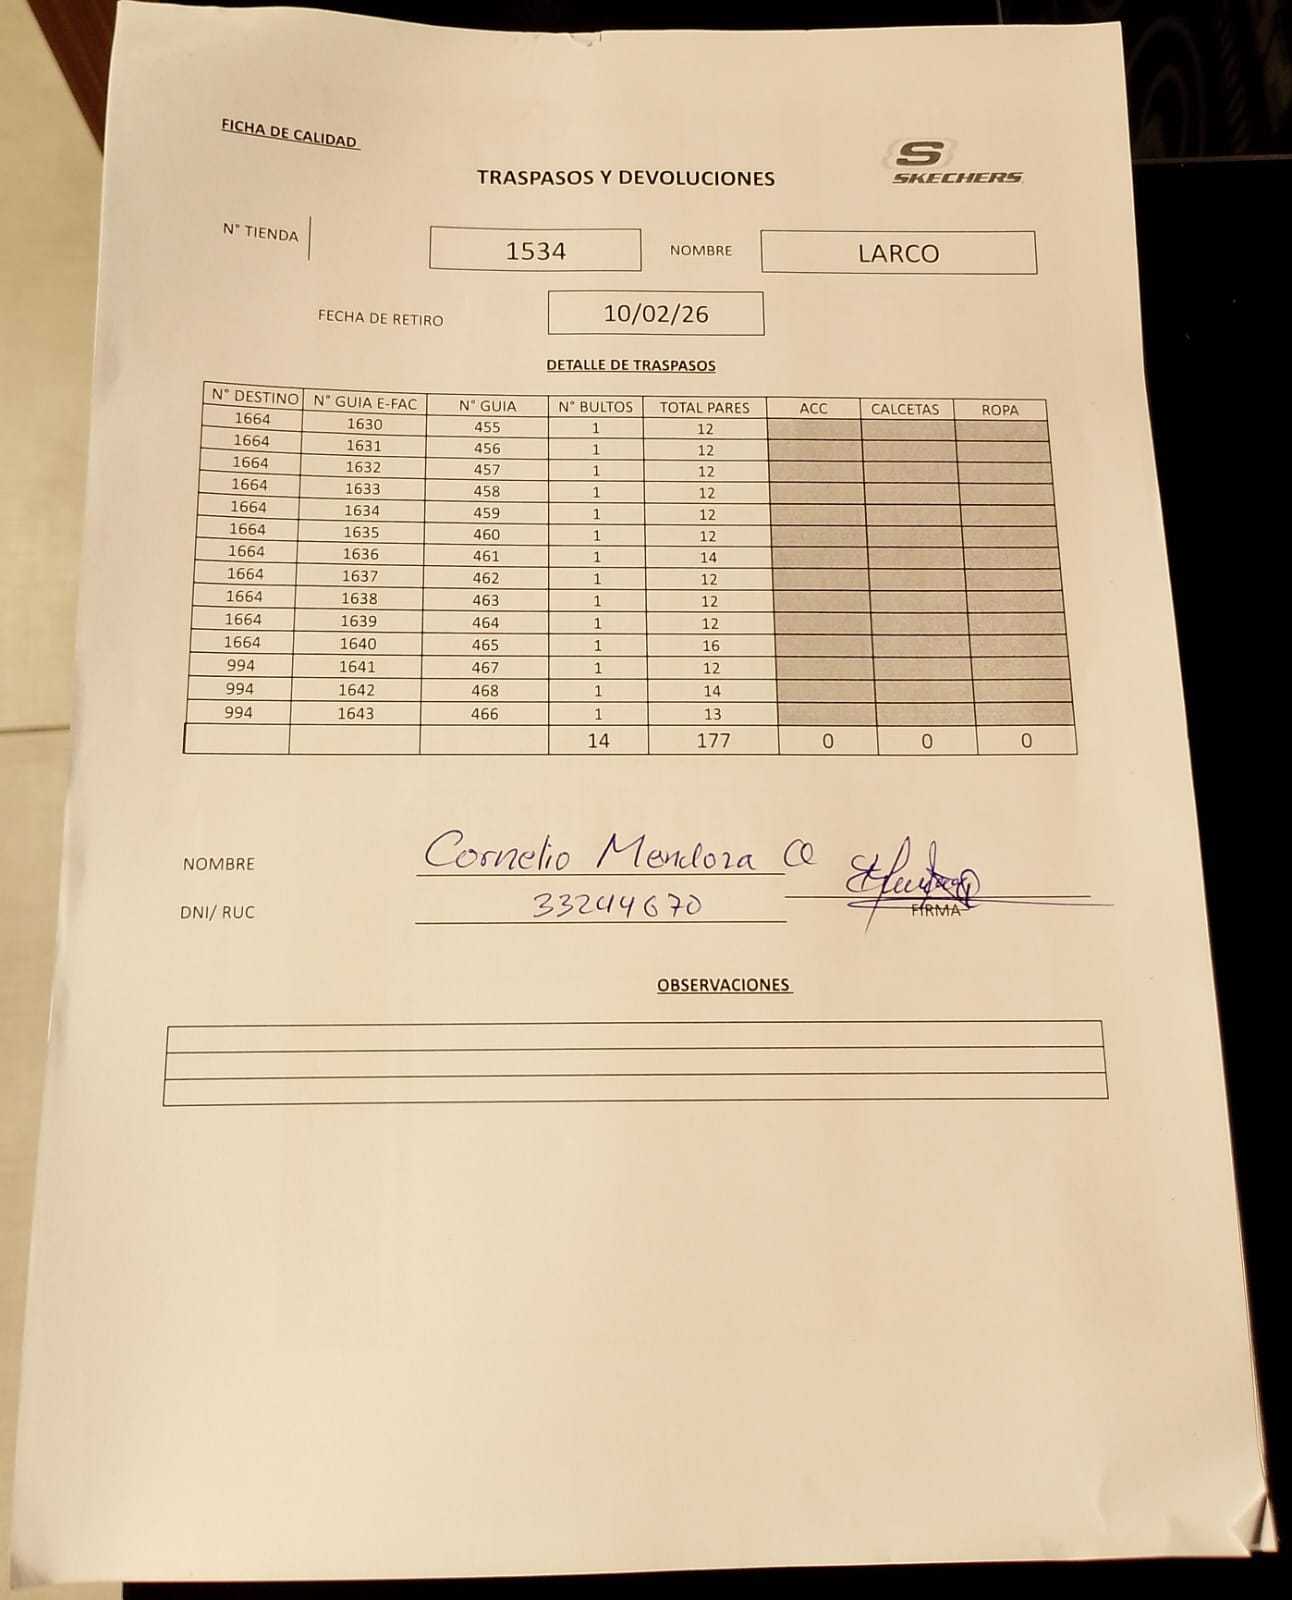 FICHA DE CALIDAD
S
SKECHERS
TRASPASOS Y DEVOLUCIONES
N° TIENDA 1534 NOMBRE LARCO
FECHA DE RETIRO 10/02/26
DETALLE DE TRASPASOS
N° DESTINO N° GUIA E-FAC N° GUIA N° BULTOS TOTAL PARES ACC CALCETAS ROPA
1664 1630 455 1 12
1664 1631 456 1 12
1664 1632 457 1 12
1664 1633 458 1 12
1664 1634 459 1 12
1664 1635 460 1 12
1664 1636 461 1 14
1664 1637 462 1 12
1664 1638 463 1 12
1664 1639 464 1 12
1664 1640 465 1 16
994 1641 467 1 12
994 1642 468 1 14
994 1643 466 1 13
14 177 0 0 0
NOMBRE Cornelio Mendoza Q
DNI/ RUC 33244670
FIRMA
OBSERVACIONES